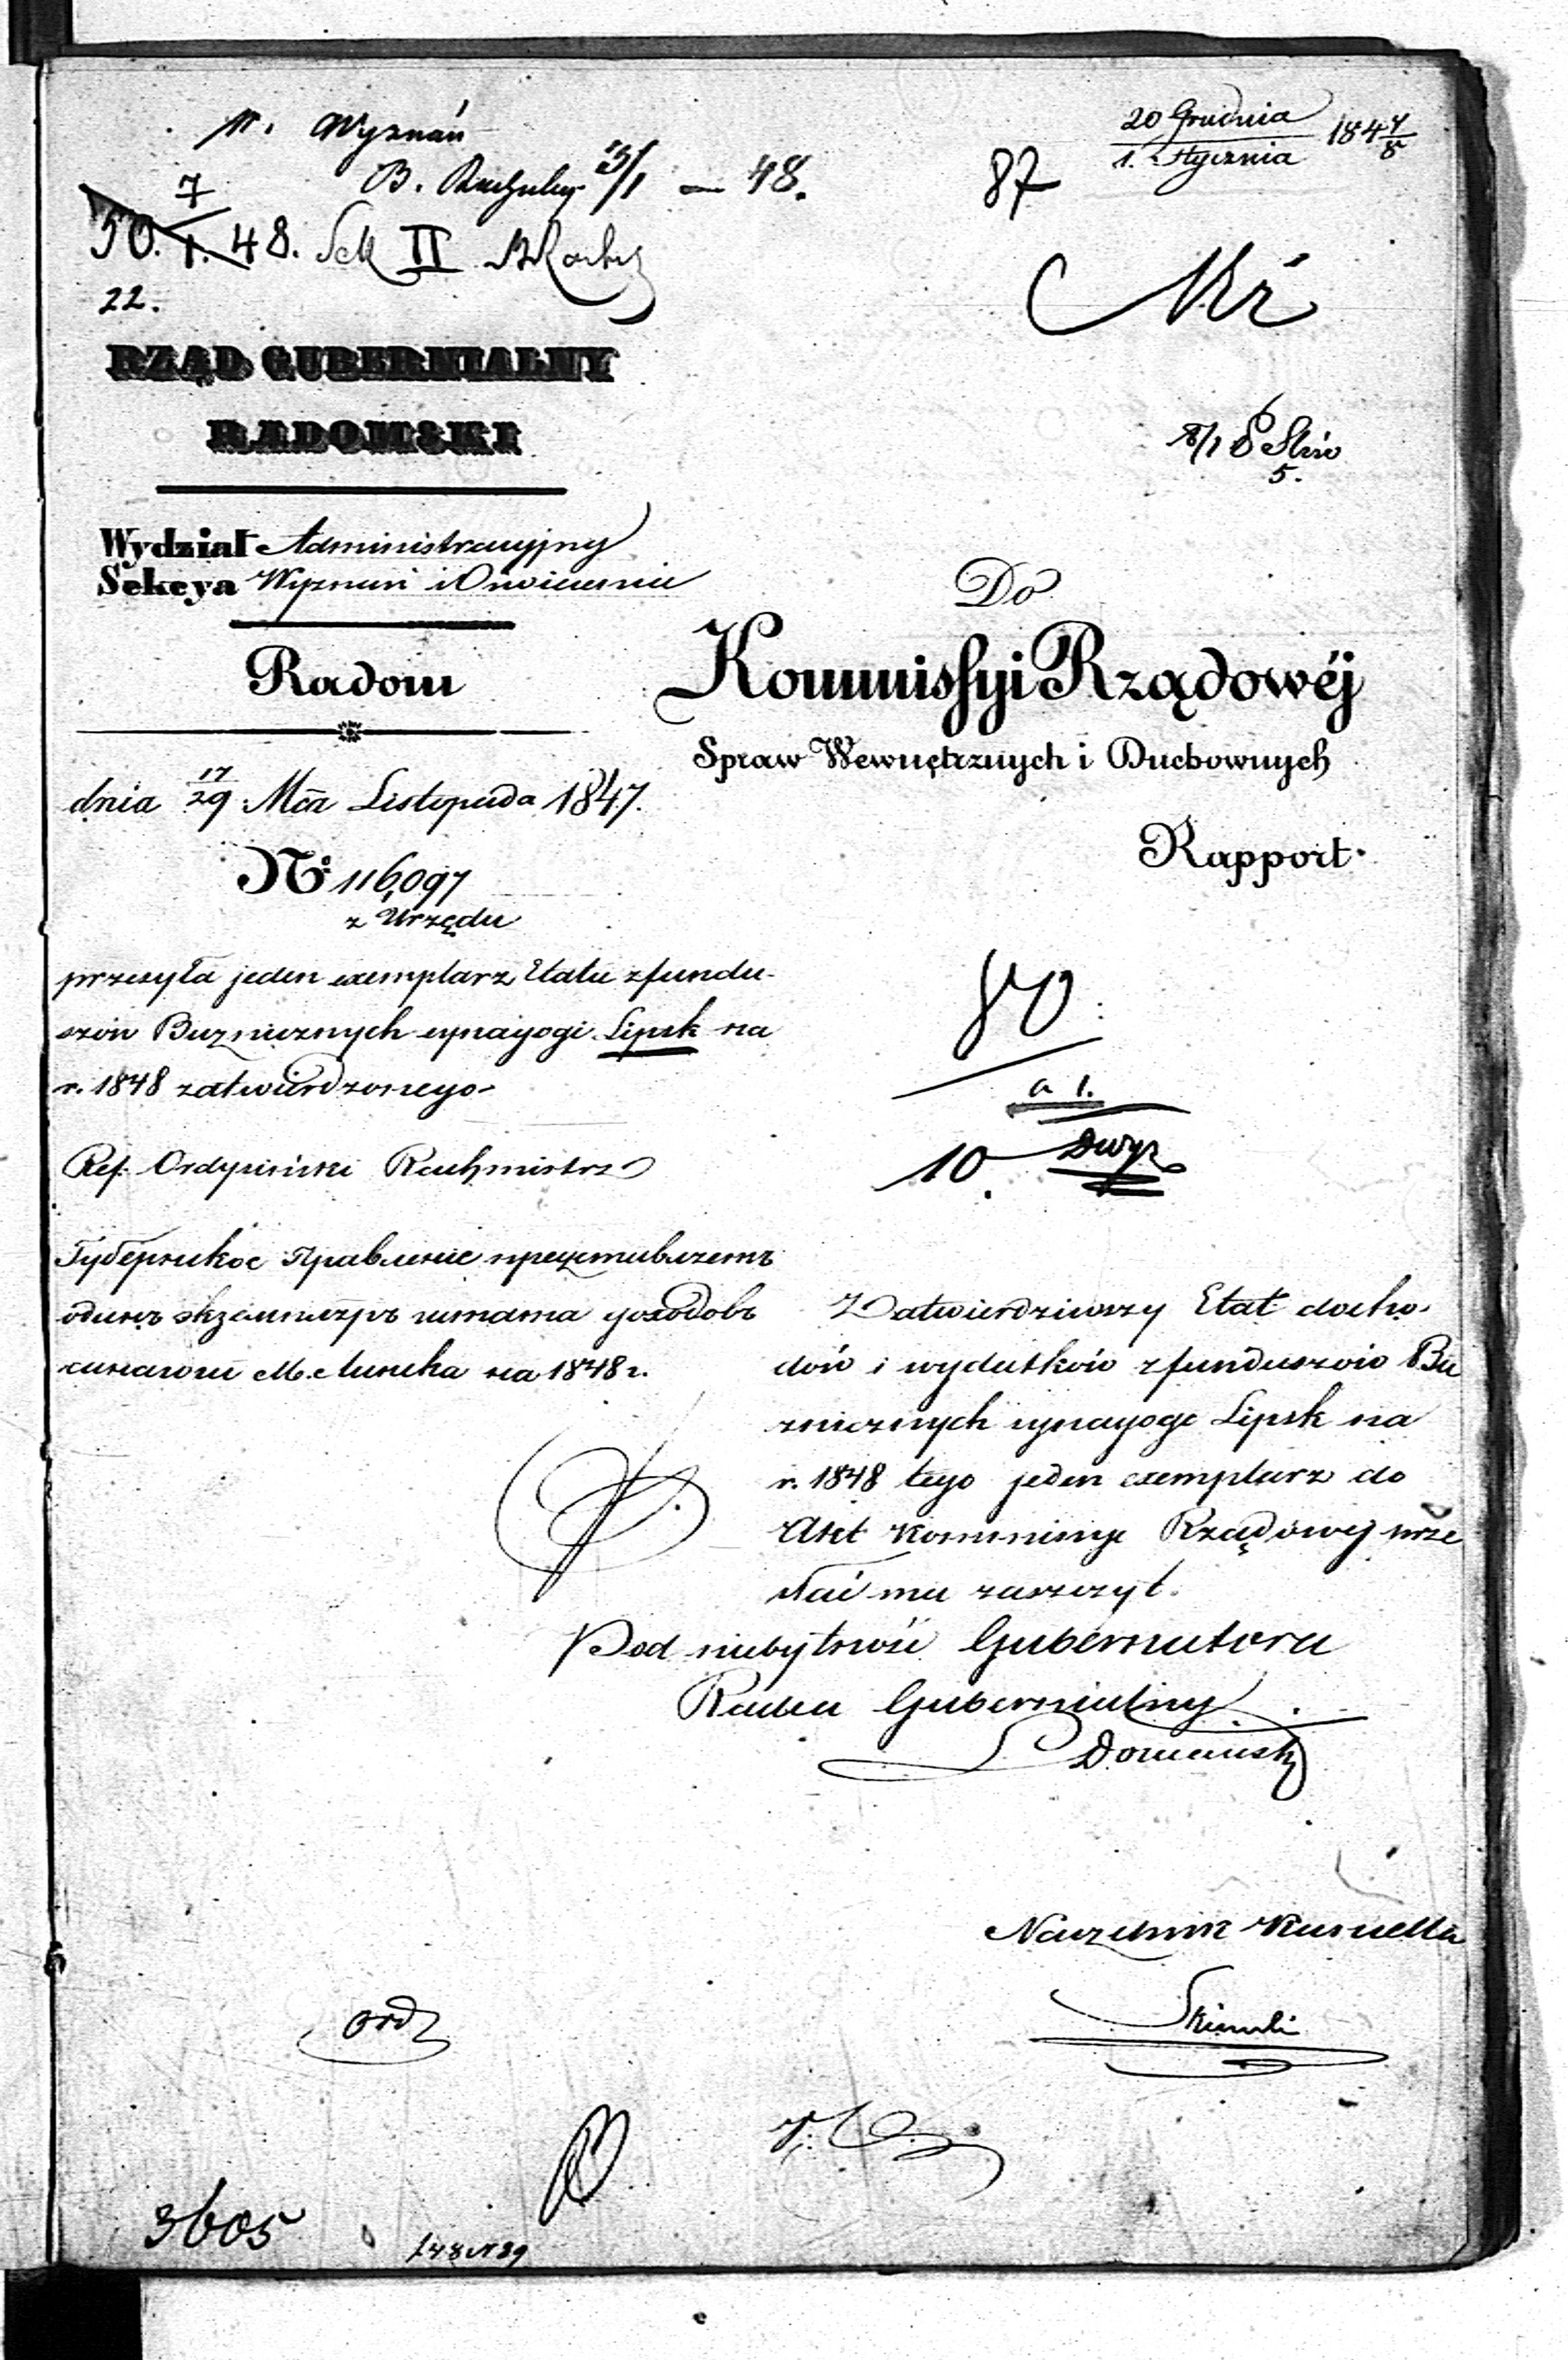 W. Wyznań
B. 13/1 — 48.
20 Grudnia
1. Stycznia 184 7/8
87
7
50. 1. 48. Sek II
22.
RZĄD GUBERNIALNY
RADOMSKI
8/1
5.
Wydział Administracyjny
Sekcya Wyznań i Oświecenia
Radom
dnia 17/29 Mca Listopada 1847.
Nº 116,097
z Urzędu
przesyła jeden exemplarz Etatu z fundu-
szów Bużnicznych synagogi Lipsk na
r. 1848 zatwierdzonego
Ref. Ordyński Rachmistrz
Губернское Правленіе представляетъ
одинъ экземпляръ штата доходовъ
синагоги М. Липска на 1848 г.
Do
Kommissyi Rządowéj
Spraw Wewnętrznych i Duchownych
Rapport.
a 1.
10.
Zatwierdziwszy Etat docho-
dów i wydatków z funduszów Bu
żnicznych synagogi Lipsk na
r. 1848 tego jeden exemplarz do
Akt Kommissyi Rządowej prze
słać ma zaszczyt.
Pod niebytność Gubernatora
Radca Gubernialny
Domański
Naczelnik Kancella
Ord
3605